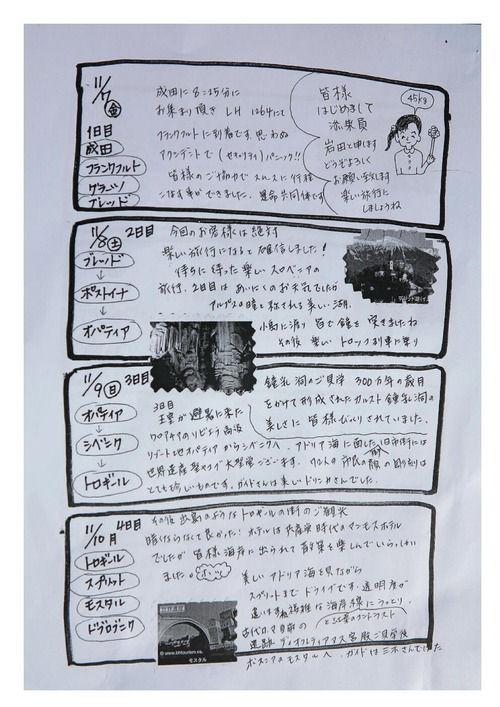 11/7 金
1日目
成田
フランクフルト
グラーツ
ブレッド
成田に8:25分に
お集まり頂き LH 1264にて
フランクフルトに到着です。思わぬ
アクシデントで(セキュリティ)パニック!!
皆様のご協力でスムースに行程
こなす事ができました。運命共同体です
皆様
はじめまして
添乗員
岩田と申します
どうぞよろしく
お願い致します
楽しい旅行に
しましょうね
45kg
11/8 土 2日目
ブレッド
↓
ポストイナ
↓
オパティア
今回のお客様は絶対
楽しい旅行になると確信しました!
待ちに待った楽しいスロベニアの
旅行、2日目はあいにくのお天気でしたが
アルプスの瞳と称される美しい湖。
小島に渡り皆で鐘を突きましたね
その後 楽しい トロッコ列車に乗り
11/9 日 3日目
オパティア
↓
シベニク
↓
トロギール
鍾乳洞のご見学 300万年の歳月
をかけて形成されたカルスト鍾乳洞の
美しさに 皆様びっくりされていました。
3日目
王室が避暑に来た
クロアチアのリビエラ 高級
リゾート地オパティアからシベニクへ。アドリア海に面した旧市街には
世界遺産 聖ヤコブ大聖堂がございます。72人の市民の顔の彫刻は
とても珍しいものです。ガイドさんは美しいドリンカさんでした。
11/10 月 4日目
トロギール
スプリット
モスタル
ドブロブニク
その後 出島のようなトロギールの街のご観光
暗けならなくて良かった! ホテルは共産党時代のマンモスホテル
でしたが 皆様海岸に出られて散策を楽しんでいらっしゃい
ました。ホッ
美しいアドリア海を見ながら
スプリットまで ドライブです。透明度が
違います 複雑な海岸線にうっとり。
古代ローマ
遺跡 ディオクレティアヌス宮殿ご見学後
ボスニアのモスタルへ ガイドは三木さんでした
www.bhtourism.va
モスタル